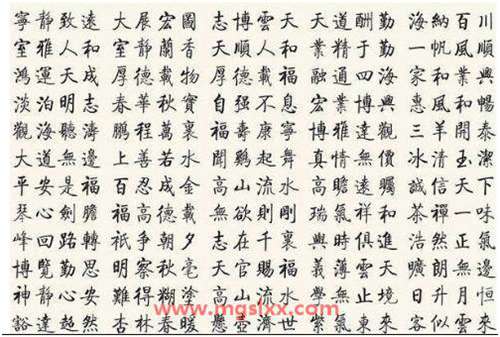 寧靜致遠 大展宏圖 志博雲天 天道酬勤 海納百川
室雅人和 室靜蘭香 大順人和 業精于勤 一帆風順
鴻運天成 厚德載物 厚德載福 融通四海 家和業興
淡泊明志 春華秋實 自强不息 宏業博興 惠風和暢
觀海聽濤 鵬程萬裏 福壽康寧 博雅達觀 三羊開泰
大道無邊 上善若水 聞鷄起舞 真情無價 冰清玉潔
平安是福 百忍成金 高山流水 高瞻遠矚 誠信天下
琴心劍膽 福高德載 無欲則剛 瑞氣祥和 茶禪一味
峰回路轉 祇爭朝夕 志在千裏 與時俱進 浩然正氣
博覽勤思 明察秋毫 天官賜福 義薄雲天 無邊
神静心安 難得糊塗 高山流水 學無止境 日升月恒
www.mgslxx.com
豁達超然 杏林春暖 懸壺濟世 紫氣東來 客似雲來